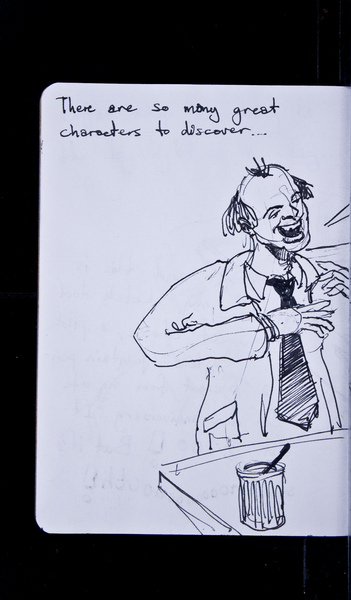 There are so many great
characters to discover...